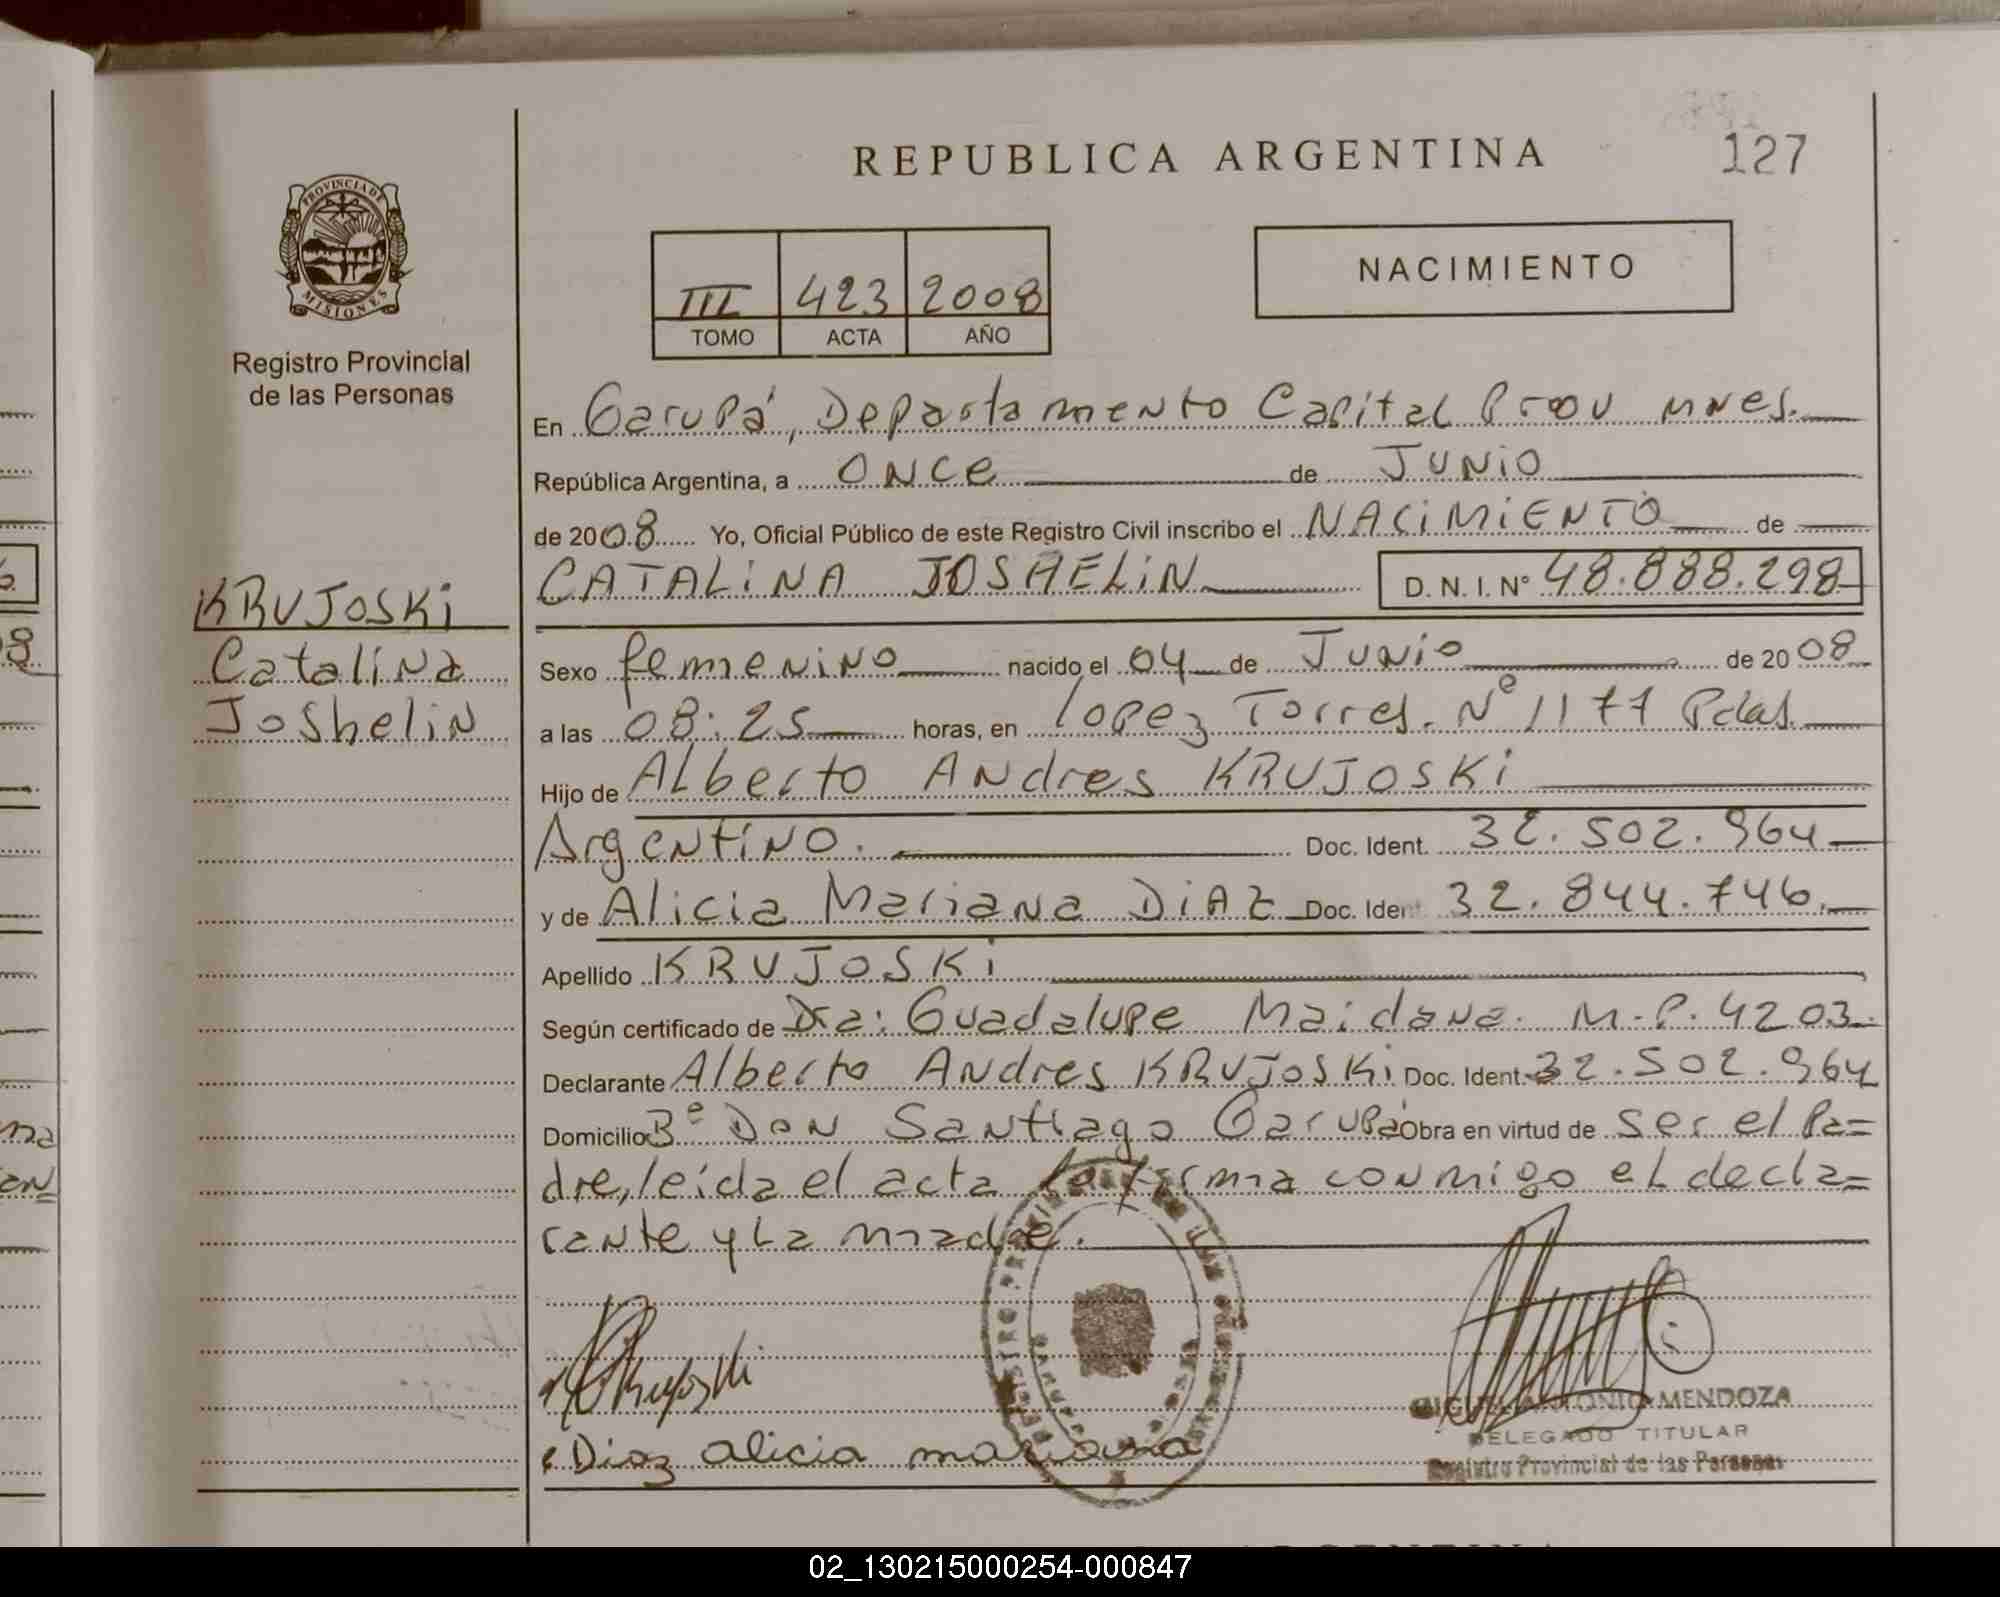 REPUBLICA ARGENTINA
127
PROVINCIA DE
MISIONES
Registro Provincial
de las Personas
III 423 2008
TOMO ACTA AÑO
NACIMIENTO
En Garupá, Departamento Capital Prov Mnes.
República Argentina, a ONCE de JUNIO
de 2008 Yo, Oficial Público de este Registro Civil inscribo el NACIMIENTO de
CATALINA JOSHELIN D. N. I. Nº 48.888.298
KRUJOSKI
Catalina
Joshelin
Sexo femenino nacido el 04 de Junio de 2008
a las 08:25 horas, en lopez Torres. Nº 1177 Pdas.
Hijo de Alberto Andres KRUJOSKI
Argentino. Doc. Ident. 32.502.964
y de Alicia Mariana DIAZ Doc. Ident 32.844.746.
Apellido KRUJOSKI
Según certificado de Dra: Guadalupe Maidana. M.P. 4203.
Declarante Alberto Andres KRUJOSKI Doc. Ident. 32.502.964
Domicilio Bº Don Santiago Garupá Obra en virtud de ser el Pa=
dre, leida el acta la firma conmigo el decla=
rante y La madre.
Krujoski
Diaz alicia mariana
MIGUEL ANTONIO MENDOZA
DELEGADO TITULAR
Registro Provincial de las Personas
02_130215000254-000847